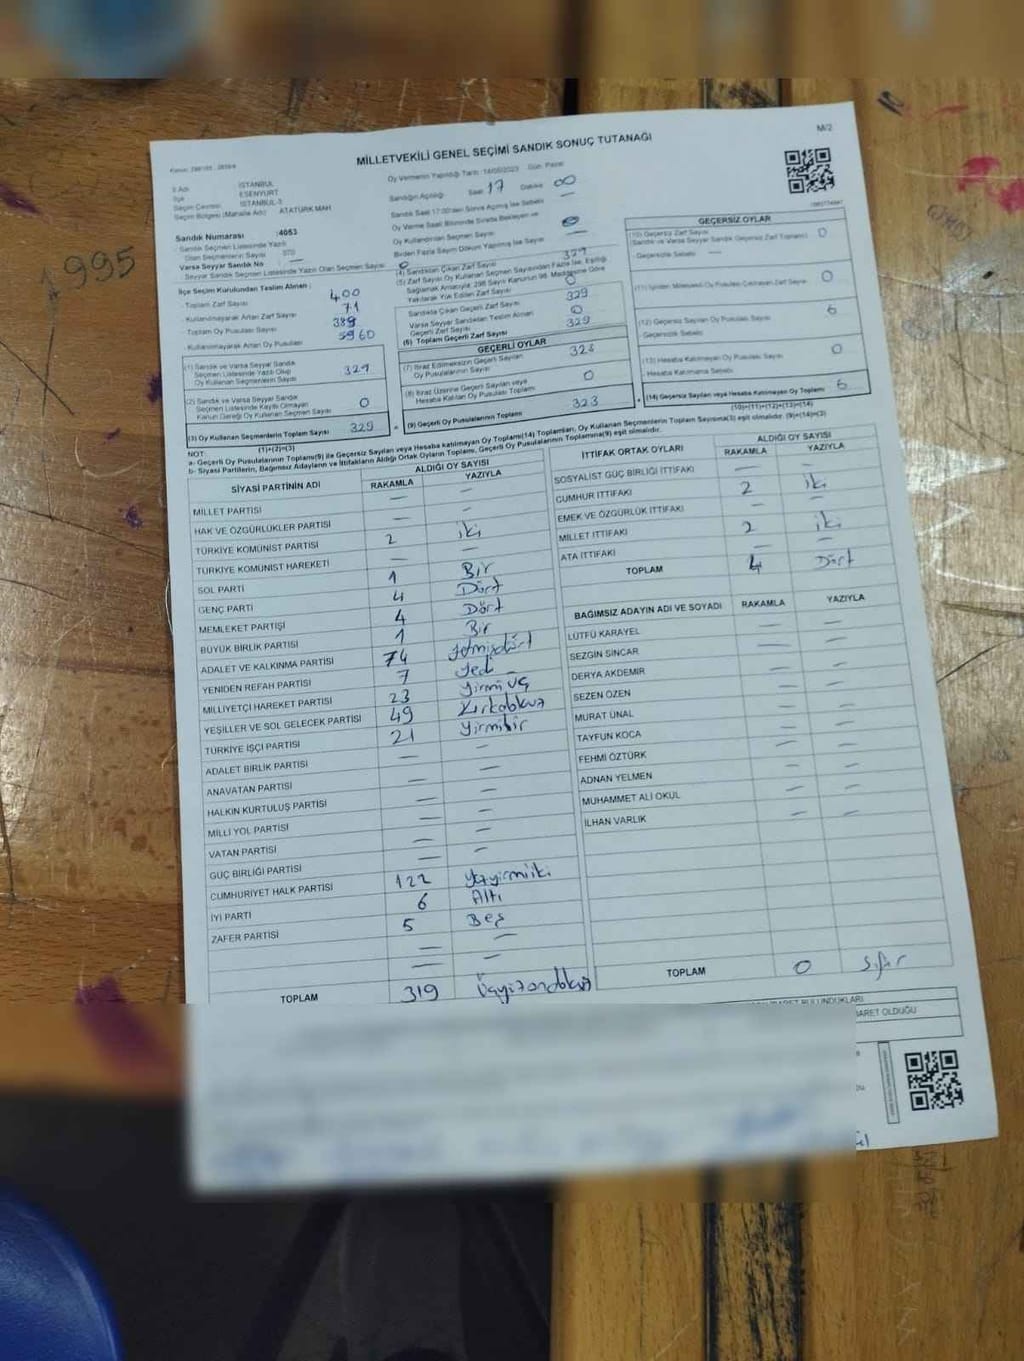 M/2
MİLLETVEKİLİ GENEL SEÇİMİ SANDIK SONUÇ TUTANAĞI
Oy Vermenin Yapıldığı Tarih :14/05/2023 Gün: Pazar
İl Adı İSTANBUL
İlçe ESENYURT
Seçim Çevresi İSTANBUL-3
Seçim Bölgesi (Mahalle Adı) ATATÜRK MAH.
Sandık Numarası :4053
Sandığın Açıldığı Saat 17 Dakika 00
Sandık Seçmen Listesinde Yazılı
Olan Seçmenlerin Sayısı
Varsa Seyyar Sandık No —
Seyyar Sandık Seçmen Listesinde Yazılı Olan Seçmen Sayısı 0
İlçe Seçim Kurulundan Teslim Alınan
- Toplam Zarf Sayısı 400
- Kullanılmayarak Artan Zarf Sayısı 71
- Toplam Oy Pusulası Sayısı
- Kullanılmayarak Artan Oy Pusulası
(1) Sandık ve Varsa Seyyar Sandık
Seçmen Listesinde Yazılı Olup
Oy Kullanan Seçmenlerin Sayısı 329
(2) Sandık ve Varsa Seyyar Sandık
Seçmen Listesinde Kayıtlı Olmayan
Kanun Gereği Oy Kullanan Seçmen Sayısı 0
(3) Oy Kullanan Seçmenlerin Toplam Sayısı 329
(1)+(2)=(3)
Sandık Saat 17:00'den Sonra Açılmış İse Sebebi —
Oy Verme Saati Bitiminde Sırada Bekleyen ve
Oy Kullandırılan Seçmen Sayısı 0
Birden Fazla Sayım Döküm Yapılmış İse Sayısı —
(4) Sandıktan Çıkan Zarf Sayısı 329
(5) Zarf Sayısı Oy Kullanan Seçmen Sayısından Fazla İse, Eşitliği
Sağlamak Amacıyla; 298 Sayılı Kanunun 98. Maddesine Göre
Yakılarak Yok Edilen Zarf Sayısı 0
Sandıkta Çıkan Geçerli Zarf Sayısı 329
Varsa Seyyar Sandıktan Teslim Alınan
Geçerli Zarf Sayısı 0
(6) Toplam Geçerli Zarf Sayısı 329
GEÇERLİ OYLAR
(7) İtiraz Edilmeksizin Geçerli Sayılan
Oy Pusulalarının Sayısı 323
(8) İtiraz Üzerine Geçerli Sayılan veya
Hesaba Katılan Oy Pusulası Toplamı 0
(9) Geçerli Oy Pusulalarının Toplamı 323
GEÇERSİZ OYLAR
(10) Geçersiz Zarf Sayısı 0
(Sandık ve Varsa Seyyar Sandık Geçersiz Zarf Toplamı)
- Geçersizlik Sebebi —
(11) İçinden Milletvekili Oy Pusulası Çıkmayan Zarf Sayısı 0
(12) Geçersiz Sayılan Oy Pusulası Sayısı 6
Geçersizlik Sebebi
(13) Hesaba Katılmayan Oy Pusulası Sayısı 0
- Hesaba Katılmama Sebebi
(14) Geçersiz Sayılan veya Hesaba Katılmayan Oy Toplamı 6
(10)+(11)+(12)+(13)=(14)
NOT:
a- Geçerli Oy Pusulalarının Toplamı(9) ile Geçersiz Sayılan veya Hesaba katılmayan Oy Toplamı(14) Toplamları, Oy Kullanan Seçmenlerin Toplam Sayısına(3) eşit olmalıdır. (9)+(14)=(3)
b- Siyasi Partilerin, Bağımsız Adayların ve İttifakların Aldığı Ortak Oyların Toplamı, Geçerli Oy Pusulalarının Toplamına(9) eşit olmalıdır.
SİYASİ PARTİNİN ADI ALDIĞI OY SAYISI
RAKAMLA YAZIYLA
MİLLET PARTİSİ — —
HAK VE ÖZGÜRLÜKLER PARTİSİ — —
TÜRKİYE KOMÜNİST PARTİSİ 2 iki
TÜRKİYE KOMÜNİST HAREKETİ — —
SOL PARTİ 1 Bir
GENÇ PARTİ 4 Dört
MEMLEKET PARTİSİ 4 Dört
BÜYÜK BİRLİK PARTİSİ 1 Bir
ADALET VE KALKINMA PARTİSİ 74 yetmişdört
YENİDEN REFAH PARTİSİ 7 Yedi
MİLLİYETÇİ HAREKET PARTİSİ 23 yirmi üç
YEŞİLLER VE SOL GELECEK PARTİSİ 49 Kırkdokuz
TÜRKİYE İŞÇİ PARTİSİ 21 yirmibir
ADALET BİRLİK PARTİSİ — —
ANAVATAN PARTİSİ — —
HALKIN KURTULUŞ PARTİSİ — —
MİLLİ YOL PARTİSİ — —
VATAN PARTİSİ — —
GÜÇ BİRLİĞİ PARTİSİ — —
CUMHURİYET HALK PARTİSİ 122 yüzyirmiiki
İYİ PARTİ 6 Altı
ZAFER PARTİSİ 5 Beş
TOPLAM 319 Üçyüzondokuz
İTTİFAK ORTAK OYLARI ALDIĞI OY SAYISI
RAKAMLA YAZIYLA
SOSYALİST GÜÇ BİRLİĞİ İTTİFAKI — —
CUMHUR İTTİFAKI 2 iki
EMEK VE ÖZGÜRLÜK İTTİFAKI — —
MİLLET İTTİFAKI 2 iki
ATA İTTİFAKI — —
TOPLAM 4 Dört
BAĞIMSIZ ADAYIN ADI VE SOYADI RAKAMLA YAZIYLA
LÜTFÜ KARAYEL — —
SEZGİN SİNCAR — —
DERYA AKDEMİR — —
SEZEN ÖZEN — —
MURAT ÜNAL — —
TAYFUN KOCA — —
FEHMİ ÖZTÜRK — —
ADNAN YELMEN — —
MUHAMMET ALİ OKUL — —
İLHAN VARLIK — —
TOPLAM 0 Sıfır
BULUNDUKLARI
OLDUĞU
1995